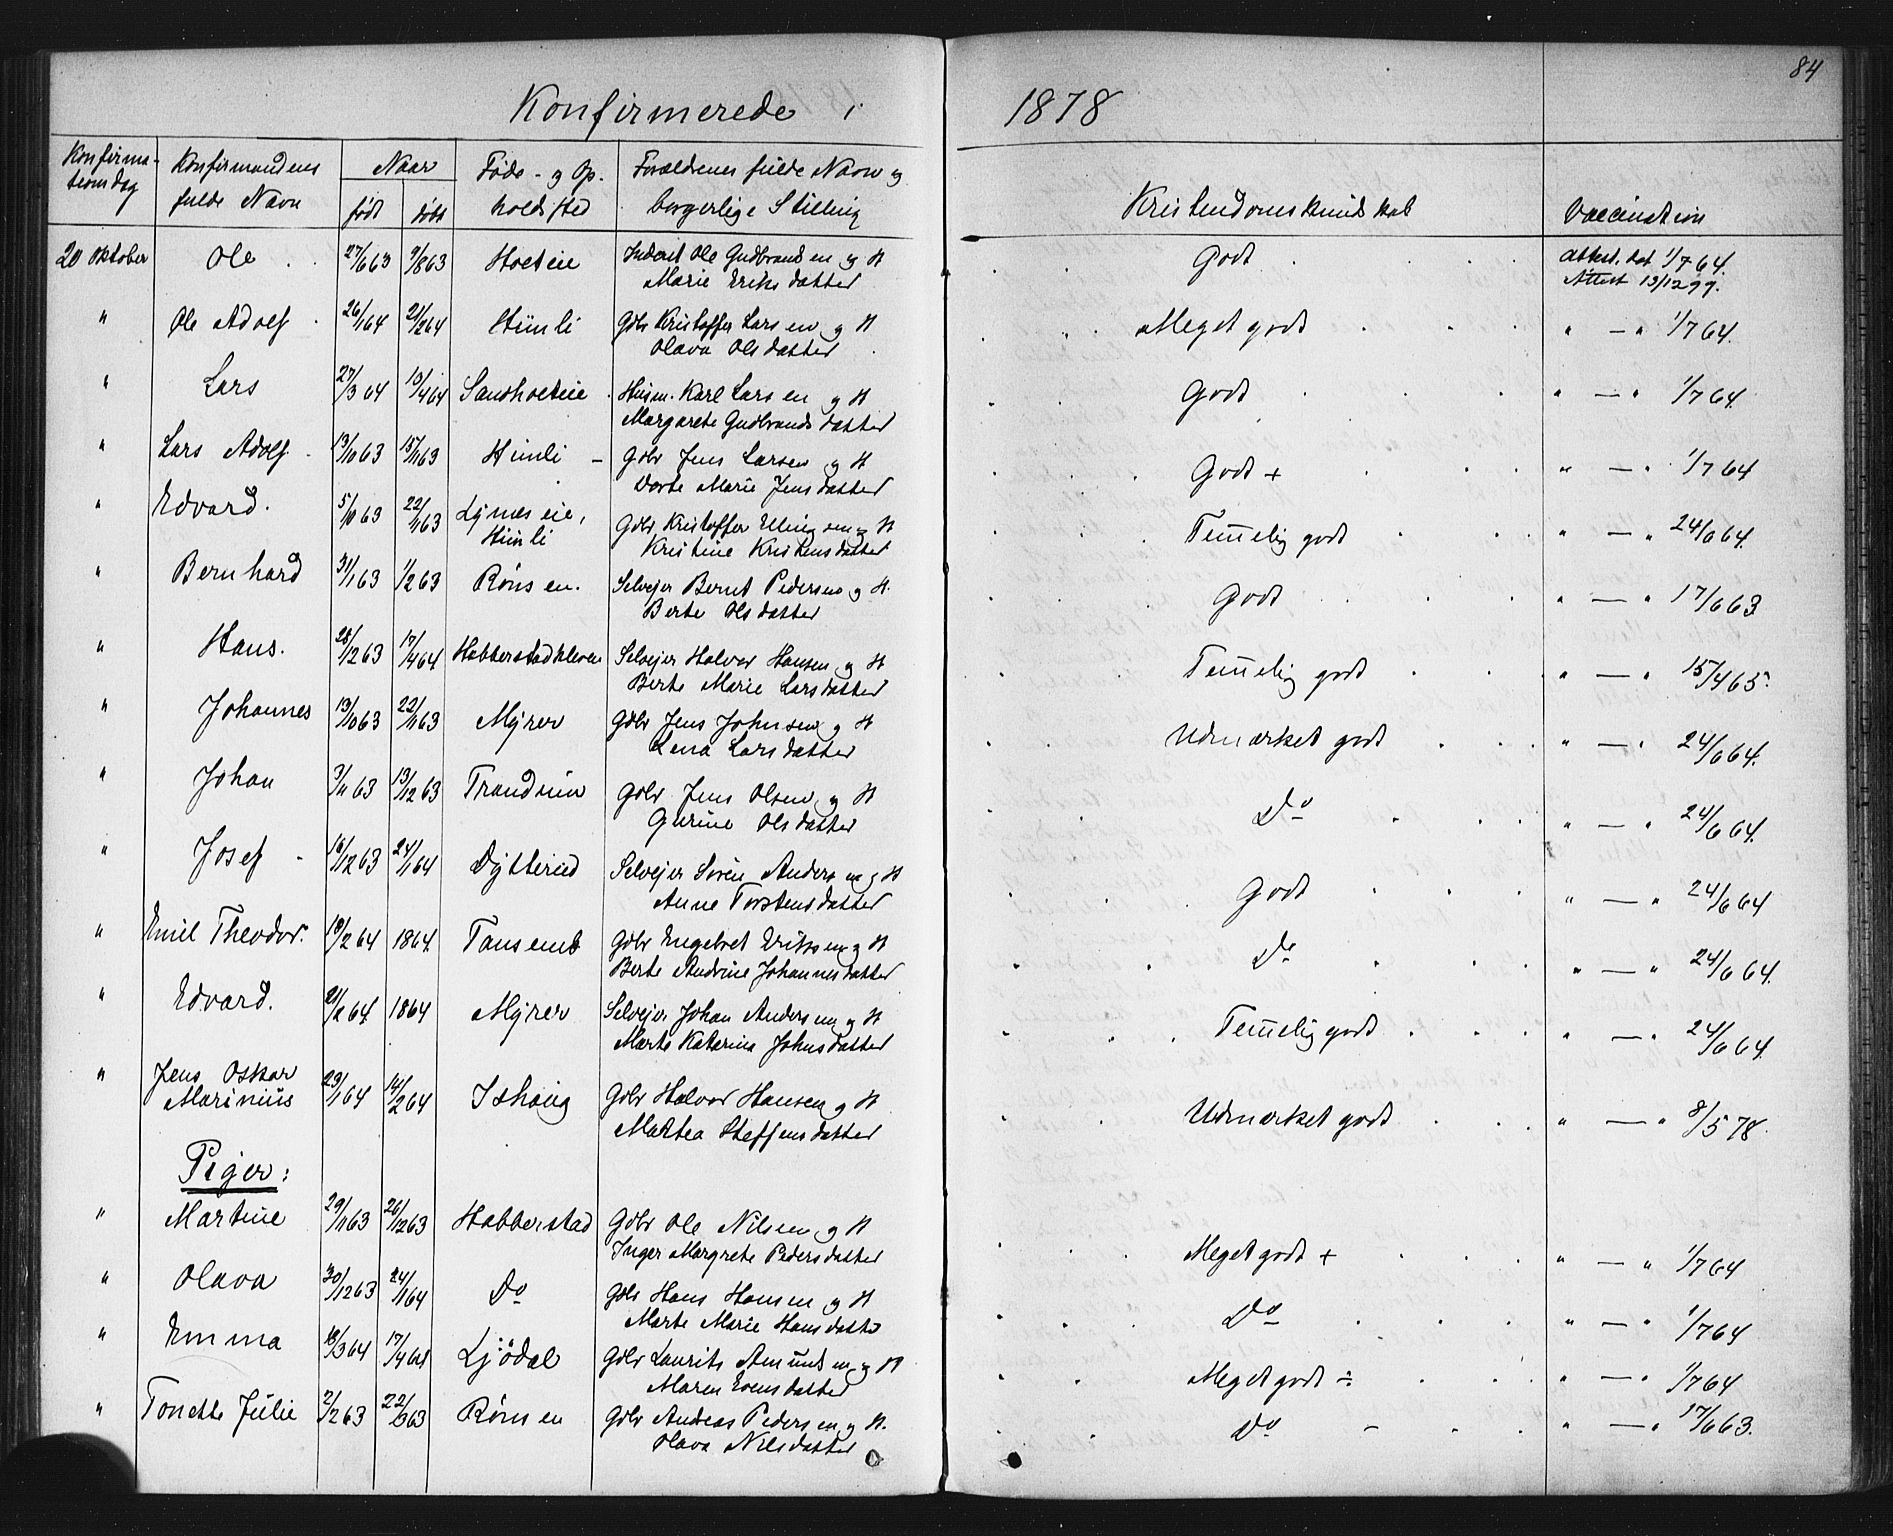 84
Konfirmerede i 1878
Konfirma-
tionsdag
Konfirmandens
fulde Navn
Naar
født
døbt
Føde- og Op-
holdssted
Forældrenes fulde Navn og
borgerlige Stilling
Kristendomskundskab
Vaccination
20 Oktober Ole 27/6 63 9/8 63 Holteie Inderst Ole Gudbrandsen og H Godt Attest. dat 1/7 64.
Marie Eriksdatter Attest 13/12 99.
" Ole Adolf 26/1 64 21/2 64 Himli Gdbr Kristoffer Larsen og H Meget godt " — " 1/7 64.
Olava Olsdatter
" Lars 27/3 64 13/4 64 Sandholteie Husm. Karl Larsen og H Godt " — " 1/7 64.
Margarete Gudbrandsdatter
" Lars Adolf 13/10 63 15/11 63 Himli Gdbr Jens Larsen og H Godt + " — " 1/7 64
Dorte Marie Jensdatter
" Edvard. 5/10 63 22/11 63 Lynæseie, Gdbr Kristoffer Ellingsen og H Temelig godt " — " 24/6 64.
Himli Kristine Kristensdatter
" Bernhard 31/1 63 1/2 63 Rønsen. Selvejer Bernt Pedersen og H. Godt " — " 17/6 63
Berte Olsdatter
" Hans. 28/12 63 17/4 64. Habberstadkleven Selvejer Halvor Hansen og H Temelig godt " — " 15/4 65.
Berte Marie Larsdatter
" Johannes 13/10 63 22/11 63 Myrer Gdbr Jens Johnsen og H Udmærket godt " — " 24/6 64.
Lena Larsdatter
" Johan 3/11 63 13/12 63 Trandum Gdbr Jens Olsen og H Do " — " 24/6 64.
Gurine Olsdatter
" Josef 16/12 63 24/1 64 Dytterud Selvejer Søren Andersen og H Godt " — " 24/6 64
Anne Torstensdatter
" Emil Theodor. 18/2 64 1864. Tansemb Gdbr Engebret Eriksen og H Do " — " 24/6 64.
Berte Andrine Johannesdatter
" Edvard. 21/2 64 1864 Myrer Selvejer Johan Andersen og H Temelig godt " — " 24/6 64.
Marte Katarina Johnsdatter
" Jens Oskar
Marinius 29/1 64 14/2 64 Ishaug Gdbr Halvor Hansen og H Udmærket godt " — " 8/5 78.
Martea Steffensdatter
Piger:
" Martine 29/11 63 26/12 63 Habberstad Gdbr Ole Nilsen og H Meget godt + " — " 1/7 64
Inger Margrete Pedersdatter
" Olava 30/12 63 24/1 64 Do Gdbr Hans Hansen og H Do " — " 1/7 64
Marte Marie Hansdatter
" Emma 18/3 64 17/4 64 Ljödal Gdbr Laurits Amundsen og H Meget godt ÷ " — " 1/7 64
Maren Evensdatter
" Tonette Julie 2/2 63 22/3 63 Rønsen Gdbr Andreas Pedersen og H. Do — " — " 17/6 63.
Olava Nilsdatter